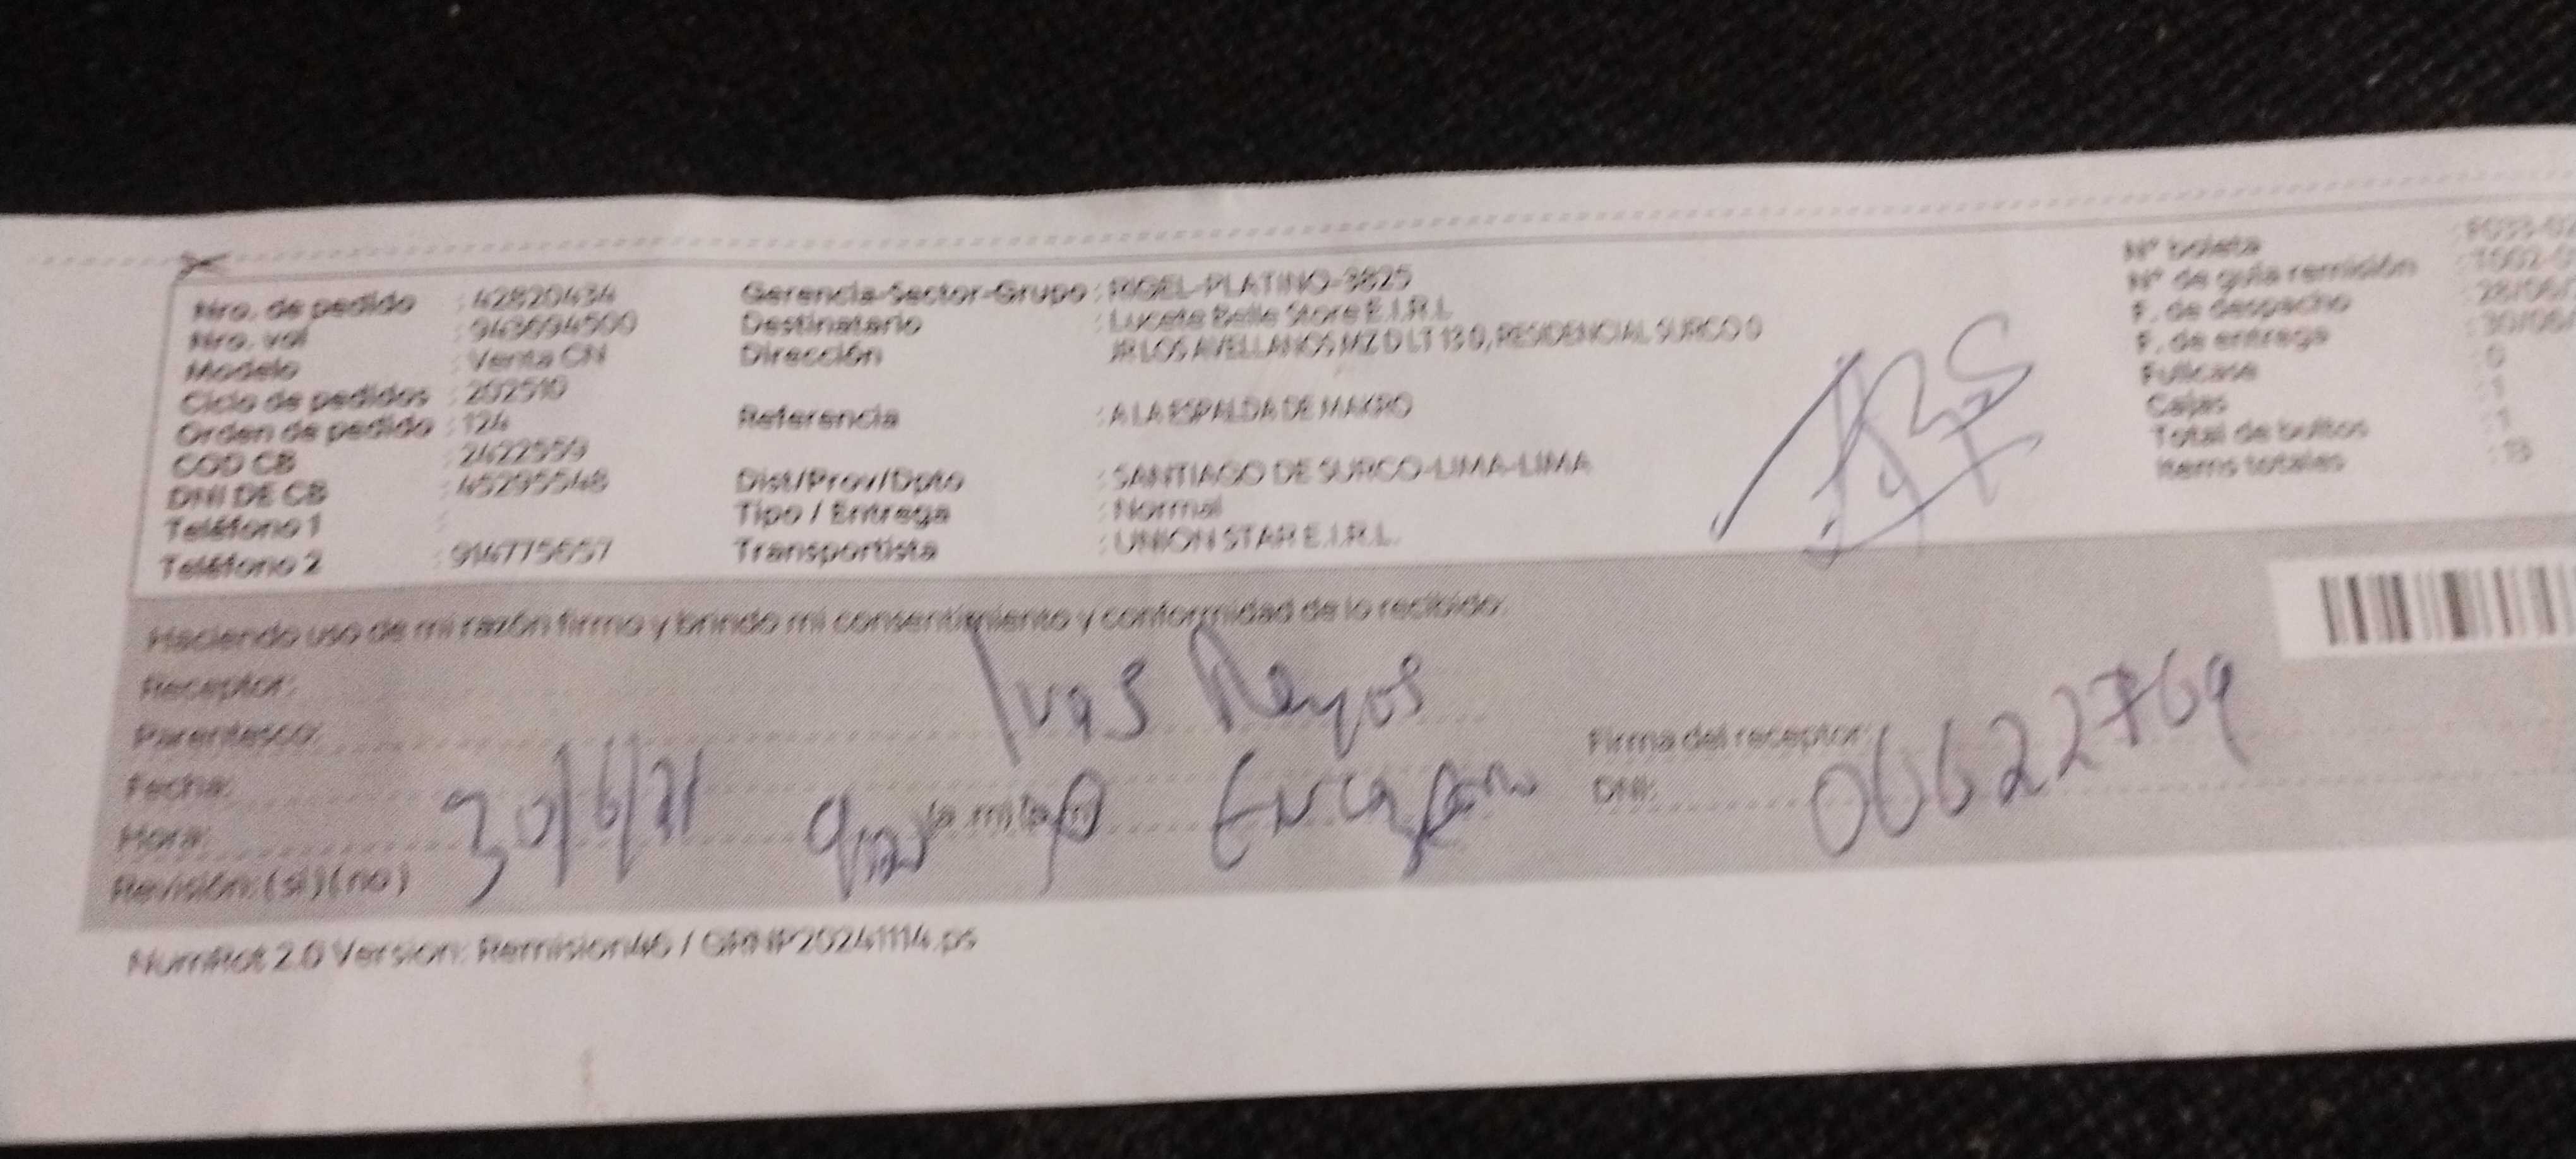 Nro. de pedido : 42820434
Nro. vol : 943694500
Modelo : Venta CN
Ciclo de pedidos : 202510
Orden de pedido : 124
COD CB : 2422559
DNI DE CB : 45295548
Teléfono 1 :
Teléfono 2 : 914775657
Gerencia-Sector-Grupo : RIGEL-PLATINO-3825
Destinatario : Lucete Belle Store E.I.R.L
Dirección JR LOS AVELLANOS MZ D LT 13 0, RESIDENCIAL SURCO 0
Referencia : A LA ESPALDA DE MAKRO
Dist/Prov/Dpto : SANTIAGO DE SURCO-LIMA-LIMA
Tipo / Entrega : Normal
Transportista : UNION STAR E.I.R.L.
N° boleta
N° de guía remisión : T002-0
F. de despacho : 28/06/
F. de entrega : 30/06/
Fullcase : 0
Cajas : 1
Total de bultos : 1
Items totales
Haciendo uso de mi razón firmo y brindo mi consentimiento y conformidad de lo recibido:
Receptor:
Parentesco: Reyes
Fecha:
Hora: (a.m) (p.m)
Revisión: (si) (no)
Firma del receptor:
DNI: 06622769
NumRot 2.0 Version: Remision46 / GRNP20241114.ps